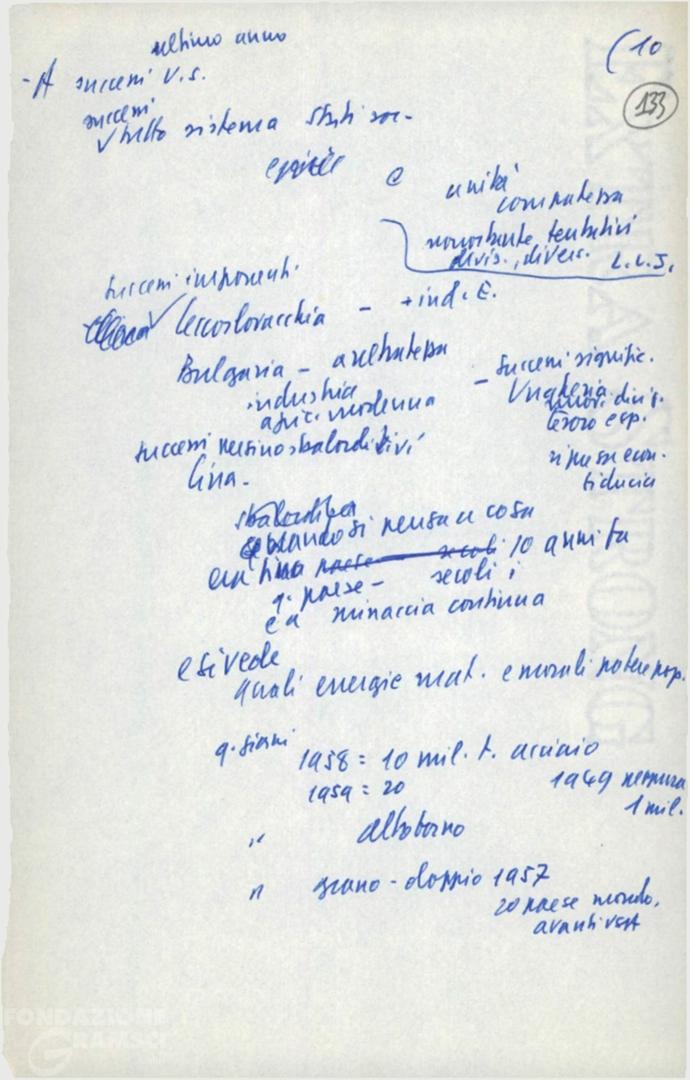 (10
133
ultimo anno
- A successi U.S.
successi
√ tutto sistema Stati soc.
e
unità
compattezza
nonostante tentativi
divis., divers. L.C.J.
Successi imponenti
Cecoslovacchia - + ind. E.
Bulgaria - arretratezza
industria
agric. moderna
- Successi signific.
Ungheria
divis.
ripresa econ.
fiducia
successi persino sbalorditivi
Cina -
quando si pensa a cosa
era Cina paese secoli 10 anni fa
q. paese - secoli i
e a minaccia continua
e si vede
quali energie mat. e morali potere pop.
q. giorni
1958 = 10 mil. t. acciaio
1959 = 20
1949 neppure
1 mil.
" altoforno
" grano - doppio 1957
2o paese mondo,
avanti USA
FONDAZIONE
GRAMSCI